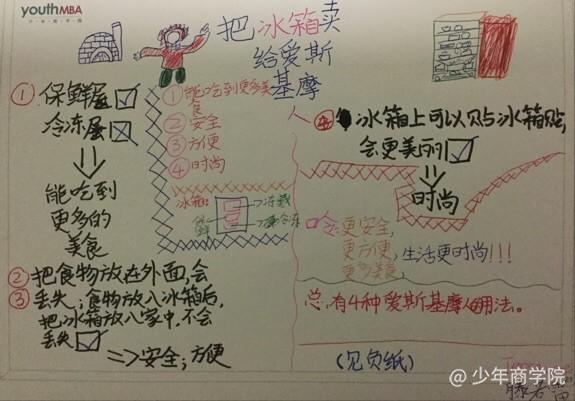 youthMBA
少年商学院
把冰箱卖
给爱斯
基摩
人
① 保鲜层 ☑
冷冻层 ☒
能吃到
更多的
美食
① 能吃到更多美
食
② 安全
③ 方便
④ 时尚
冰箱:
冻藏
冷冻
② 把食物放在外面,会
③ 丢失;食物放入冰箱后,
把冰箱放入家中,不会
丢失 ☑
=>安全;方便
④ 冰箱上可以贴冰箱贴,
会更美丽 ☑
时尚
更安全,
更方便,生活更时尚!!!
更多美食,
总,有4种爱斯基摩人的用法。
(见负纸)
@少年商学院